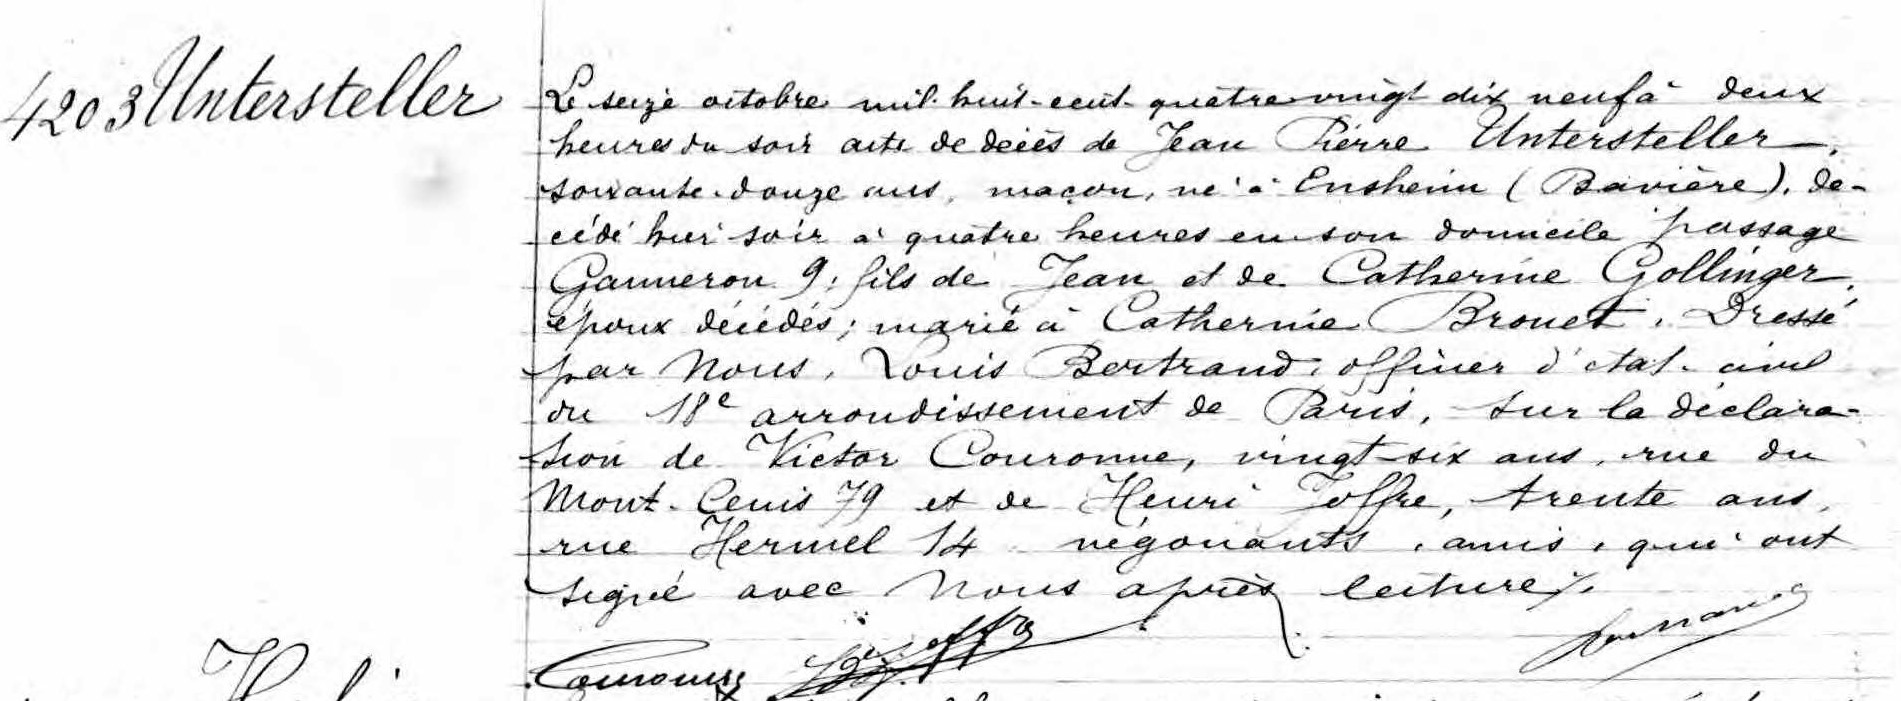 4203 Untersteller
Le seize octobre mil-huit-cent-quatre vingt dix neuf à deux
heures du soir acte de décès de Jean Pierre Untersteller,
soixante-douze ans, maçon, né à Ensheim (Bavière). dé-
cédé hier soir à quatre heures en son domicile passage
Ganneron 9; fils de Jean et de Catherine Gollinger,
époux décédés; marié à Catherine Brouet. Dressé
par Nous, Louis Bertrand, officier d'état-civil
du 18e arrondissement de Paris, sur la déclara-
tion de Victor Couronne, vingt-six ans, rue du
Mont-Cenis 79 et de Henri Joffre, trente ans,
rue Hermel 14 négociants, amis, qui ont
signé avec Nous après lecture
Couronne